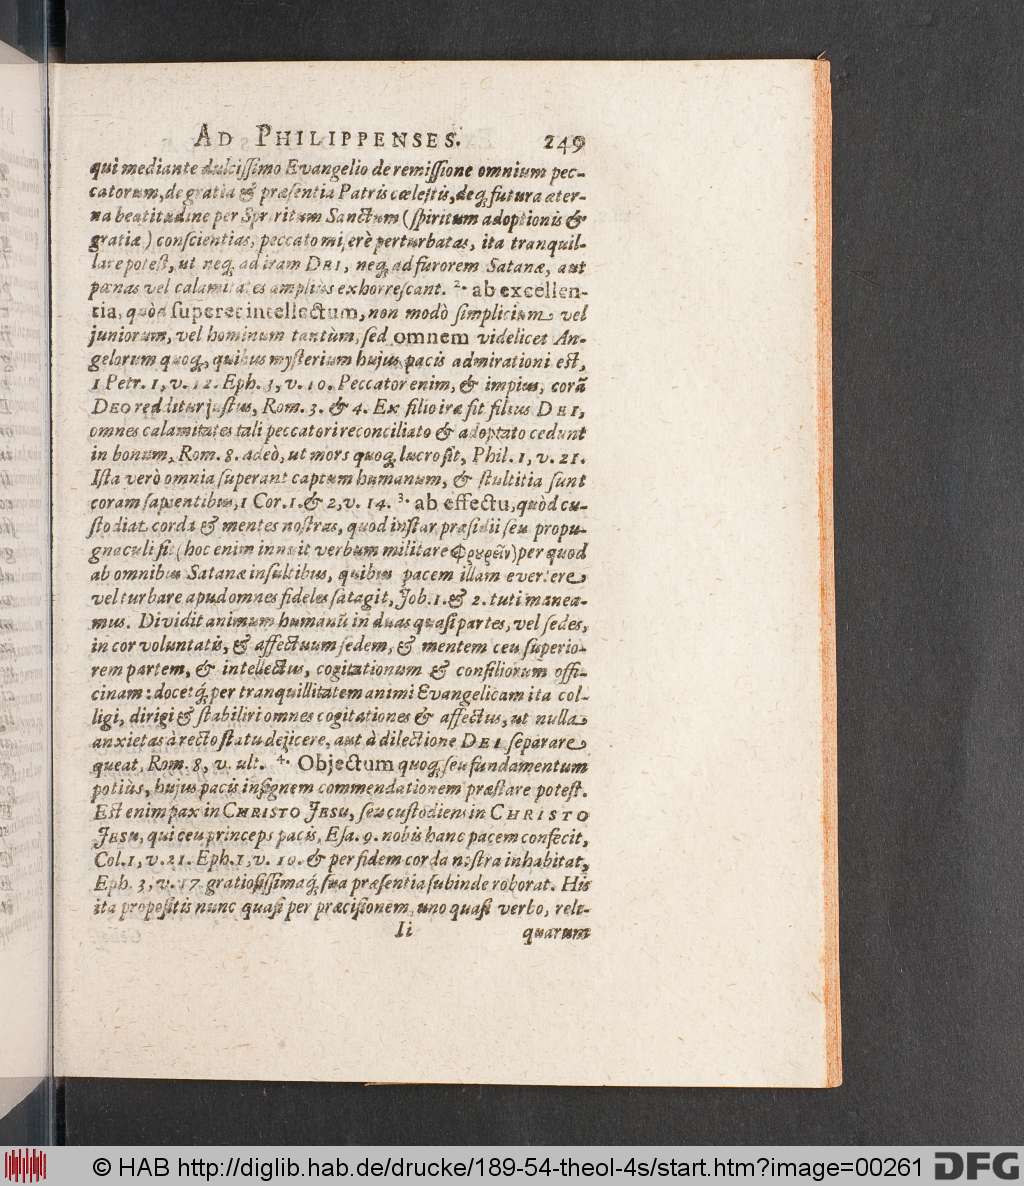 AD PHILIPPENSES. 249
qui mediante dulcissimo Evangelio de remissione omnium pec-
catorum, de gratia & præsentia Patris cœlestis, deq; futura æter-
na beatitudine per Spiritum Sanctum (spiritum adoptionis &
gratiæ) conscientias, peccato miserè perturbatas, ita tranquil-
lare potest, ut neq; ad iram DEI, neq; ad furorem Satanæ, aut
pœnas vel calamitates amplius exhorrescant. 2. ab excellen-
tia, quòd superet intellectum, non modò simplicium vel
juniorum, vel hominum tantùm, sed omnem videlicet An-
gelorum quoq;, quibus mysterium hujus pacis admirationi est,
1 Petr. 1, v. 12. Eph. 3, v. 10. Peccator enim, & impius, corã
DEO redditur justus, Rom. 3. & 4. Ex filio iræ fit filius DEI,
omnes calamitates tali peccatori reconciliato & adoptato cedunt
in bonum, Rom. 8. adeò, ut mors quoq; lucro sit, Phil. 1, v. 21.
Ista verò omnia superant captum humanum, & stultitia sunt
coram sapientibus, 1 Cor. 1. & 2, v. 14. 3. ab effectu, quòd cu-
stodiat corda & mentes nostras, quod instar præsidii seu propu-
gnaculi sit (hoc enim innuit verbum militare φρουρεῖν) per quod
ab omnibus Satanæ insultibus, quibus pacem illam evertere
vel turbare apud omnes fideles satagit, Job. 1. & 2. tuti manea-
mus. Dividit animum humanũ in duas quasi partes, vel sedes,
in cor voluntatis, & affectuum sedem, & mentem ceu superio-
rem partem, & intellectus, cogitationum & consiliorum offi-
cinam: docetq́; per tranquillitatem animi Evangelicam ita col-
ligi, dirigi & stabiliri omnes cogitationes & affectus, ut nulla
anxietas à recto statu dejicere, aut à dilectione DEI separare
queat, Rom. 8, v. ult. 4. Objectum quoq; seu fundamentum
potiùs, hujus pacis insignem commendationem præstare potest.
Est enim pax in CHRISTO JESU, seu custodiens in CHRISTO
JESU, qui ceu princeps pacis, Esa. 9. nobis hanc pacem confecit,
Col. 1, v. 21. Eph. 1, v. 10. & per fidem corda nostra inhabitat,
Eph. 3, v. 17 gratiosissimaq́; sua præsentia subinde roborat. His
ita propositis nunc quasi per præcisionem, uno quasi verbo, reli-
Ii quarum
© HAB http://diglib.hab.de/drucke/189-54-theol-4s/start.htm?image=00261 DFG